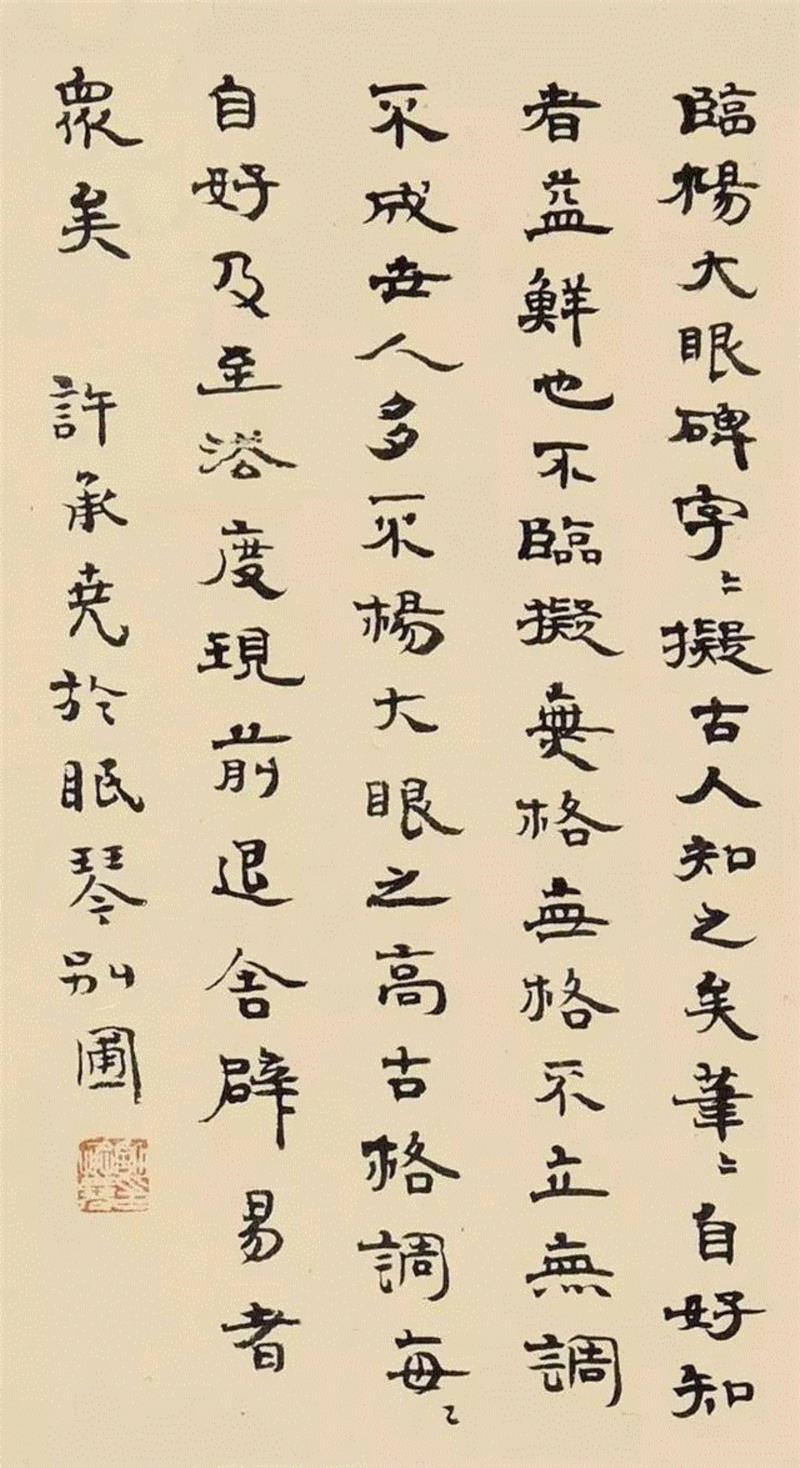 臨楊大眼碑字〻擬古人知之矣筆〻自好知
者益鮮也不臨擬無格無格不立無調
不成世人多不楊大眼之高古格調每〻
自好及至法度現前退舍辟易者
眾矣 許承堯於眠琴別圃